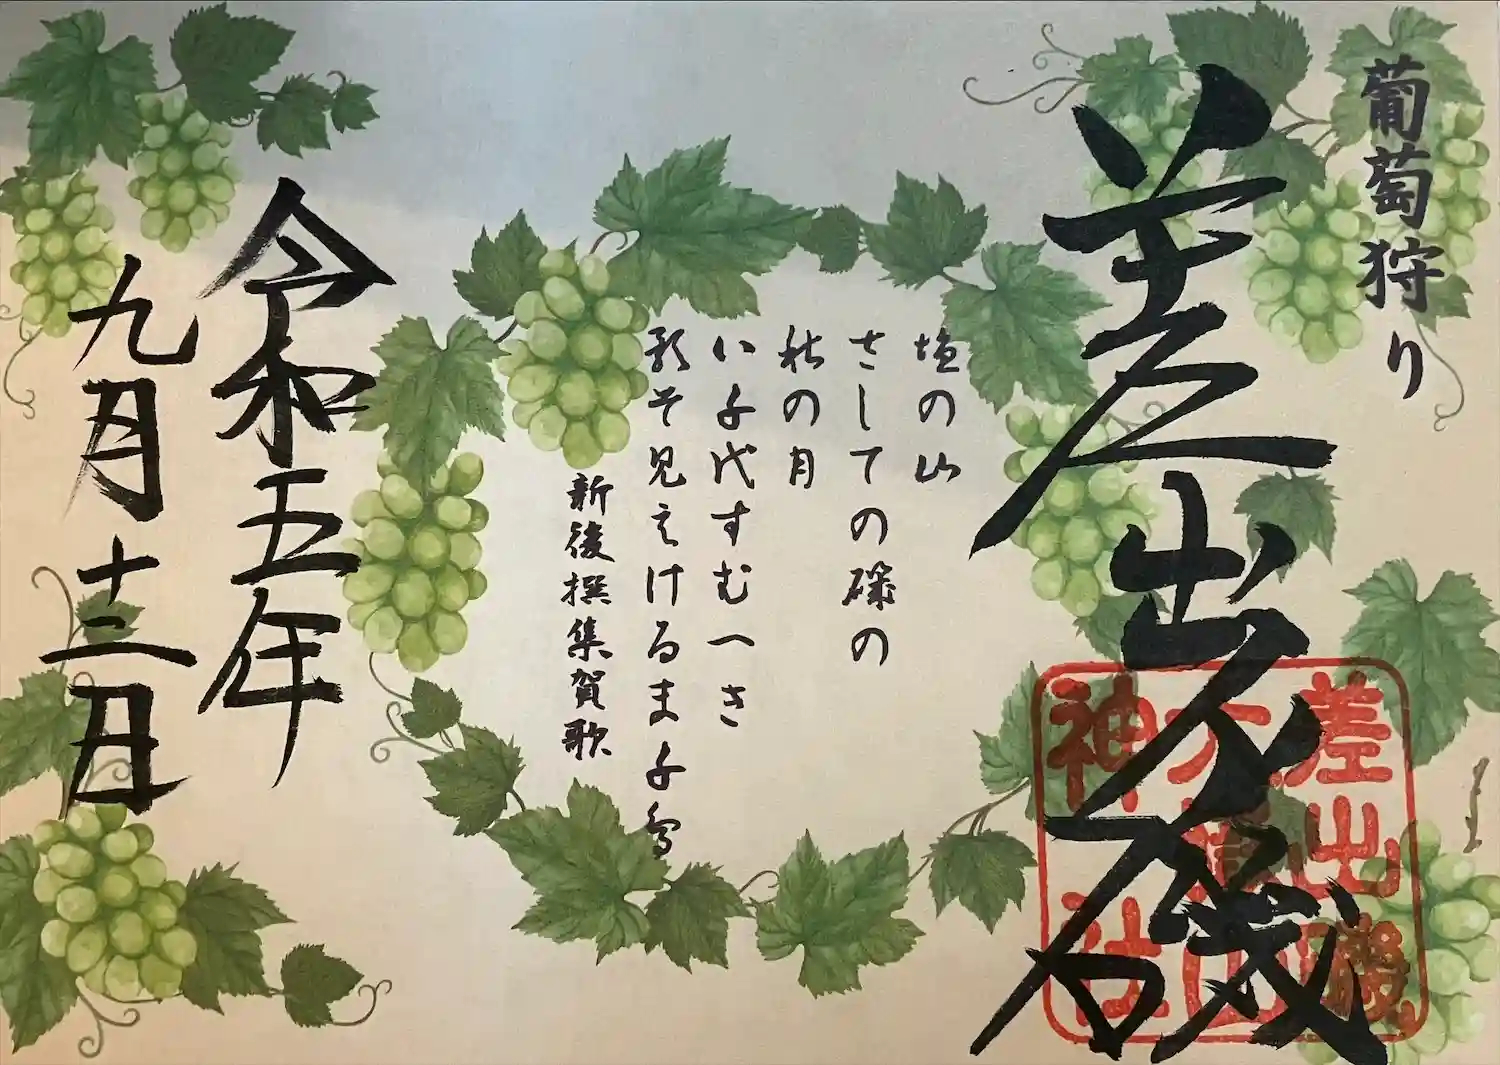 葡萄狩り
差出磯
差出磯
大嶽山
神社
塩の山
さしての磯の
秋の月
八千代すむへき
影そ見えけるま千鳥
新後撰集賀歌
令和五年
九月十三日